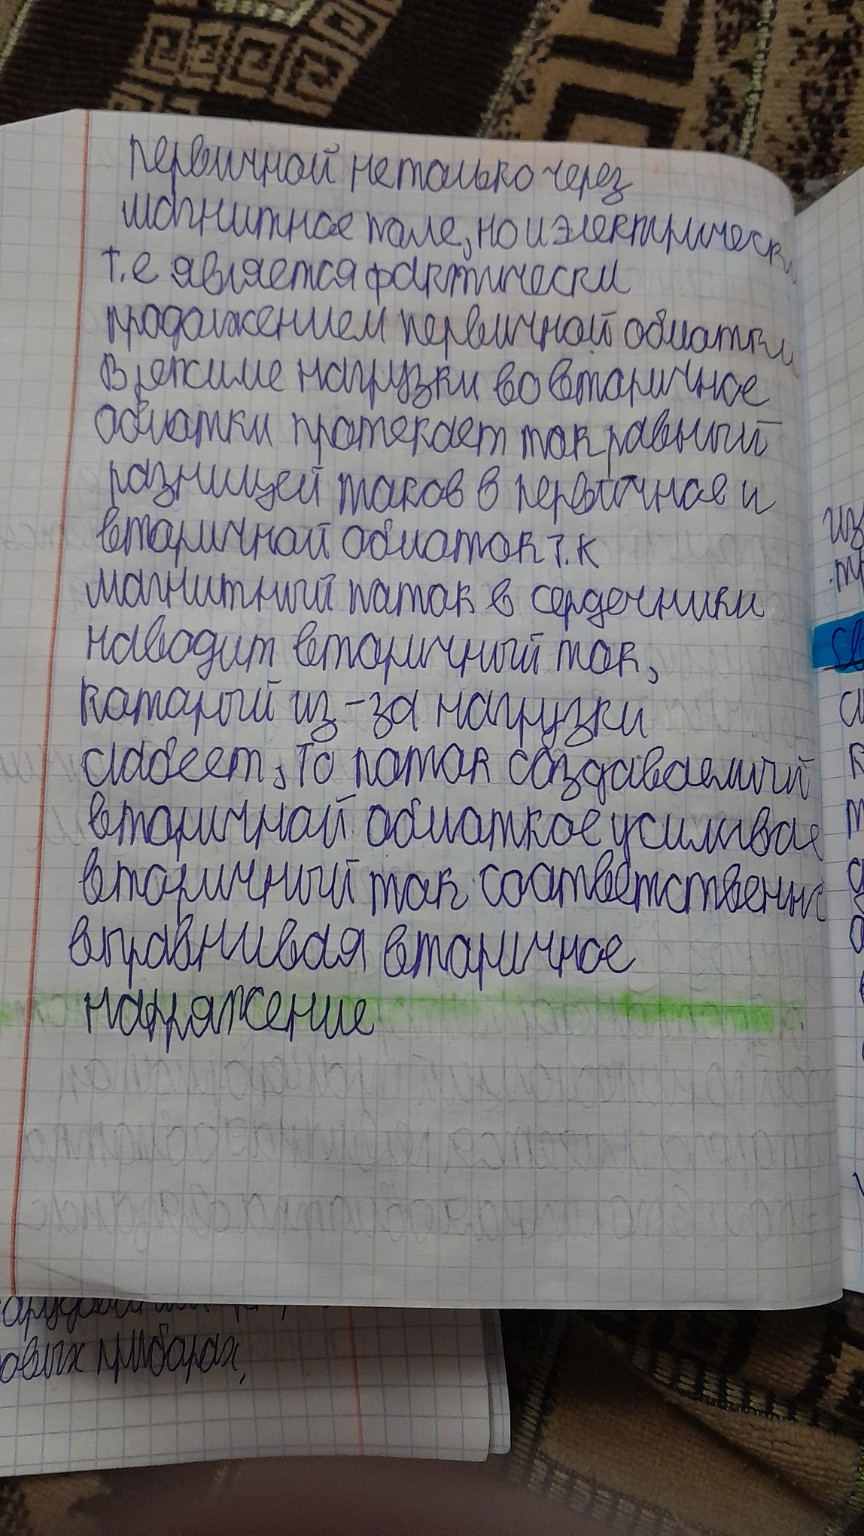 первичной не только через
магнитное поле, но и электрически
т.е является фактически
продолжением первичной обмотки
В режиме нагрузки во вторичное
обмотки протекает ток равный
разницей токов в первичное и
вторичной обмоток т.к
магнитный поток в сердечники
наводит вторичный ток,
который из-за нагрузки
слабеет, то поток создаваемый
вторичной обмоткое усиливае
вторичный ток соответственно
выравнивая вторичное
напряжение
овых приборах,